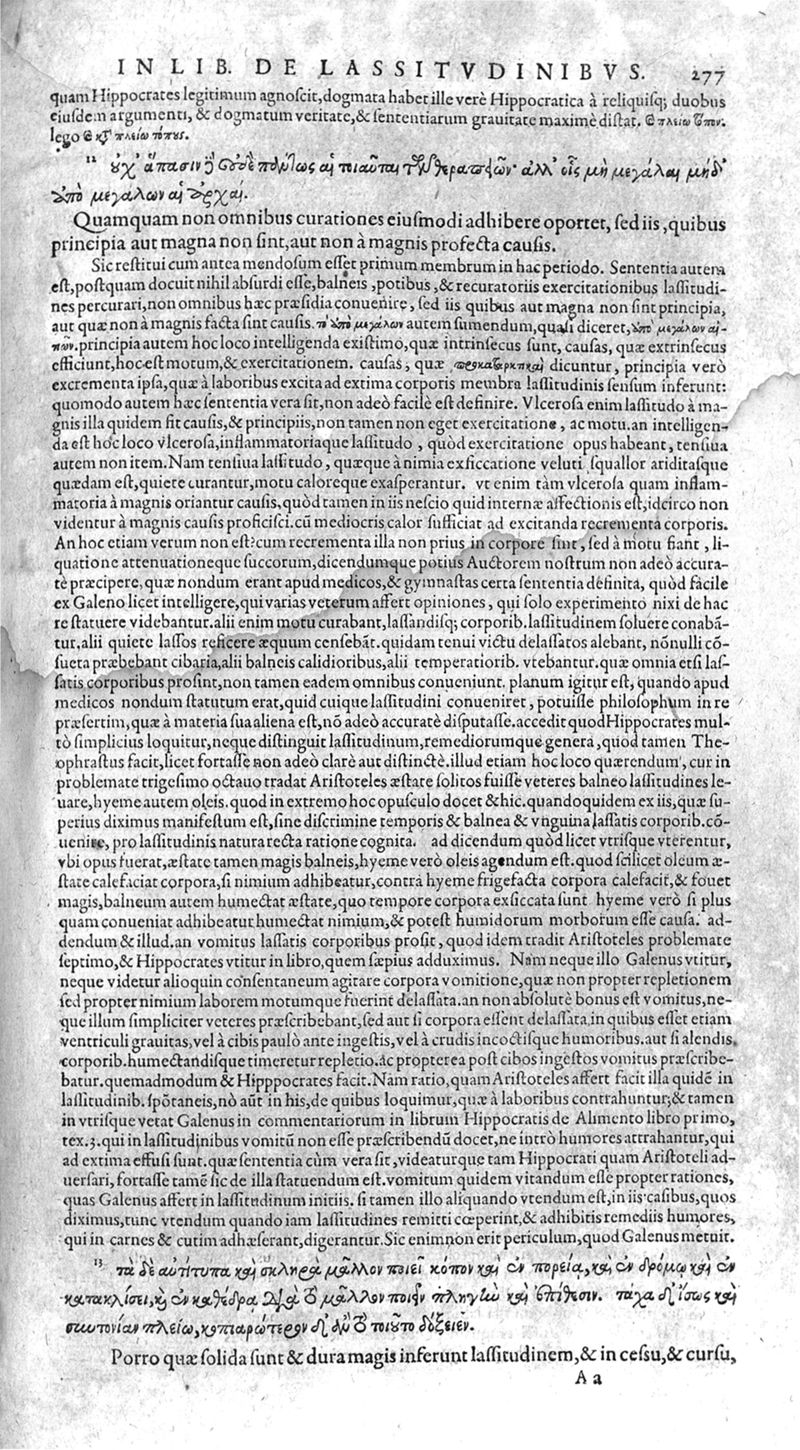 IN LIB. DE LASSITVDINIBVS. 277
quam Hippocrates legitimum agnoſcit,dogmata habet ille verè Hippocratica à reliquiſq; duobus
eiuſdem argumenti, & dogmatum veritate,& ſententiarum grauitate maximè diſtat.
lego
12 οὐχ' ἅπασιν αἱ τοιαῦται ἀλλ' οἷς μὴ μεγάλαι μηδ'
ὑπὸ μεγάλων αἱ ἀρχαί.
Quamquam non omnibus curationes eiuſmodi adhibere oportet, ſed iis ,quibus
principia aut magna non ſint,aut non à magnis profecta cauſis.
Sic reſtitui cum antea mendoſum eſſet primum membrum in hac periodo. Sententia autem
eſt,poſtquam docuit nihil abſurdi eſſe,balneis ,potibus ,& recuratoriis exercitationibus laſſitudi-
nes percurari,non omnibus hæc præſidia conuenire, ſed iis quibus aut magna non ſint principia,
aut quæ non à magnis facta ſint cauſis. τὸ ὑπὸ μεγάλων autem ſumendum,quaſi diceret,ὑπὸ μεγάλων αἰ-
τιῶν.principia autem hoc loco intelligenda exiſtimo,quæ intrinſecus ſunt, cauſas, quæ extrinſecus
efficiunt,hoc eſt motum,& exercitationem. cauſas, quæ προκαταρκτικαὶ dicuntur, principia verò
excrementa ipſa,quæ à laboribus excita ad extima corporis membra laſſitudinis ſenſum inferunt:
quomodo autem hæc ſententia vera ſit,non adeò facilè eſt definire. Vlceroſa enim laſſitudo à ma-
gnis illa quidem fit cauſis,& principiis,non tamen non eget exercitatione, ac motu.an intelligen-
da eſt hoc loco vlceroſa,inflammatoriaque laſſitudo , quòd exercitatione opus habeant, tenſiua
autem non item.Nam tenſiua laſſitudo, quæque à nimia exſiccatione veluti ſquallor ariditaſque
quædam eſt,quiete curantur,motu caloreque exaſperantur. vt enim tàm vlceroſa quam inflam-
matoria à magnis oriantur cauſis,quòd tamen in iis neſcio quid internæ affectionis eſt,idcirco non
videntur à magnis cauſis proficiſci.cū mediocris calor ſufficiat ad excitanda recrementa corporis.
An hoc etiam verum non eſt?cum recrementa illa non prius in corpore ſint, ſed à motu fiant , li-
quatione attenuationeque ſuccorum,dicendumque potius Auctorem noſtrum non adeò accura-
tè præcipere,quæ nondum erant apud medicos,& gymnaſtas certa ſententia definita, quòd facile
ex Galeno licet intelligere,qui varias veterum affert opiniones, qui ſolo experimento nixi de hac
re ſtatuere videbantur.alii enim motu curabant,laſſandiſq; corporib.laſſitudinem ſoluere conabā-
tur.alii quiete laſſos reficere æquum cenſebāt.quidam tenui victu delaſſatos alebant, nōnulli cō-
ſueta præbebant cibaria,alii balneis calidioribus,alii temperatiorib. vtebantur.quæ omnia etſi laſ-
ſatis corporibus proſint,non tamen eadem omnibus conueniunt. planum igitur eſt, quando apud
medicos nondum ſtatutum erat,quid cuique laſſitudini conueniret, potuiſſe philoſophum in re
præſertim,quæ à materia ſua aliena eſt,nō adeò accuratè diſputaſſe.accedit quod Hippocrates mul-
tò ſimplicius loquitur,neque diſtinguit laſſitudinum,remediorumque genera, quod tamen The-
ophraſtus facit,licet fortaſſe non adeò clarè aut diſtinctè.illud etiam hoc loco quærendum, cur in
problemate trigeſimo octauo tradat Ariſtoteles æſtate ſolitos fuiſſe veteres balneo laſſitudines le-
uare,hyeme autem oleis.quod in extremo hoc opuſculo docet & hic.quandoquidem ex iis,quæ ſu-
perius diximus manifeſtum eſt,ſine diſcrimine temporis & balnea & vnguina laſſatis corporib.cō-
uenire, pro laſſitudinis natura recta ratione cognita. ad dicendum quòd licet vtriſque vterentur,
vbi opus fuerat,æſtate tamen magis balneis,hyeme verò oleis agendum eſt.quod ſcilicet oleum æ-
ſtate calefaciat corpora,ſi nimium adhibeatur,contrà hyeme frigefacta corpora calefacit,& fouet
magis,balneum autem humectat æſtate,quo tempore corpora exſiccata ſunt hyeme verò ſi plus
quam conueniat adhibeatur humectat nimium,& poteſt humidorum morborum eſſe cauſa. ad-
dendum & illud.an vomitus laſſatis corporibus proſit, quod idem tradit Ariſtoteles problemate
ſeptimo,& Hippocrates vtitur in libro,quem ſæpius adduximus. Nam neque illo Galenus vtitur,
neque videtur alioquin conſentaneum agitare corpora vomitione,quæ non propter repletionem
ſed propter nimium laborem motumque fuerint delaſſata.an non abſolutè bonus eſt vomitus,ne-
que illum ſimpliciter veteres præſcribebant,ſed aut ſi corpora eſſent delaſſata,in quibus eſſet etiam
ventriculi grauitas,vel à cibis paulò ante ingeſtis, vel à crudis incoctiſque humoribus.aut ſi alendis,
corporib.humectandiſque timeretur repletio.ac propterea poſt cibos ingeſtos vomitus præſcribe-
batur.quemadmodum & Hipppocrates facit. Nam ratio, quam Ariſtoteles affert facit illa quidē in
laſſitudinib. ſpōtaneis,nō aūt in his,de quibus loquimur,quæ à laboribus contrahuntur;& tamen
in vtriſque vetat Galenus in commentariorum in librum Hippocratis de Alimento libro primo,
tex.3.qui in laſſitudinibus vomitū non eſſe præſcribendū docet,ne intrò humores attrahantur, qui
ad extima effuſi ſunt.quæ ſententia cùm vera ſit,videaturque tam Hippocrati quam Ariſtoteli ad-
uerſari, fortaſſe tamē ſic de illa ſtatuendum eſt.vomitum quidem vitandum eſſe propter rationes,
quas Galenus affert in laſſitudinum initiis. ſi tamen illo aliquando vtendum eſt,in iis caſibus,quos
diximus,tunc vtendum quando iam laſſitudines remitti cœperint,& adhibitis remediis humores,
qui in carnes & cutim adhæſerant,digerantur.Sic enim non erit periculum,quod Galenus metuit.
13 τὰ δὲ ἀντίτυπα καὶ σκληρὰ μᾶλλον ποιεῖ κόπον καὶ ἐν πορεία, καὶ ἐν δρόμω καὶ ἐν
κατακλίσει, καὶ ἐν καθέδρα διὰ τὸ μᾶλλον ποιεῖν πληγὴν καὶ τάχα δ' ἴσως καὶ
συντονίαν πλείω, κοπιαρώτερον δ' ἂν τὸ τοιοῦτο δόξειεν.
Porro quæ ſolida ſunt & dura magis inferunt laſſitudinem,& in ceſſu,& curſu,
A a